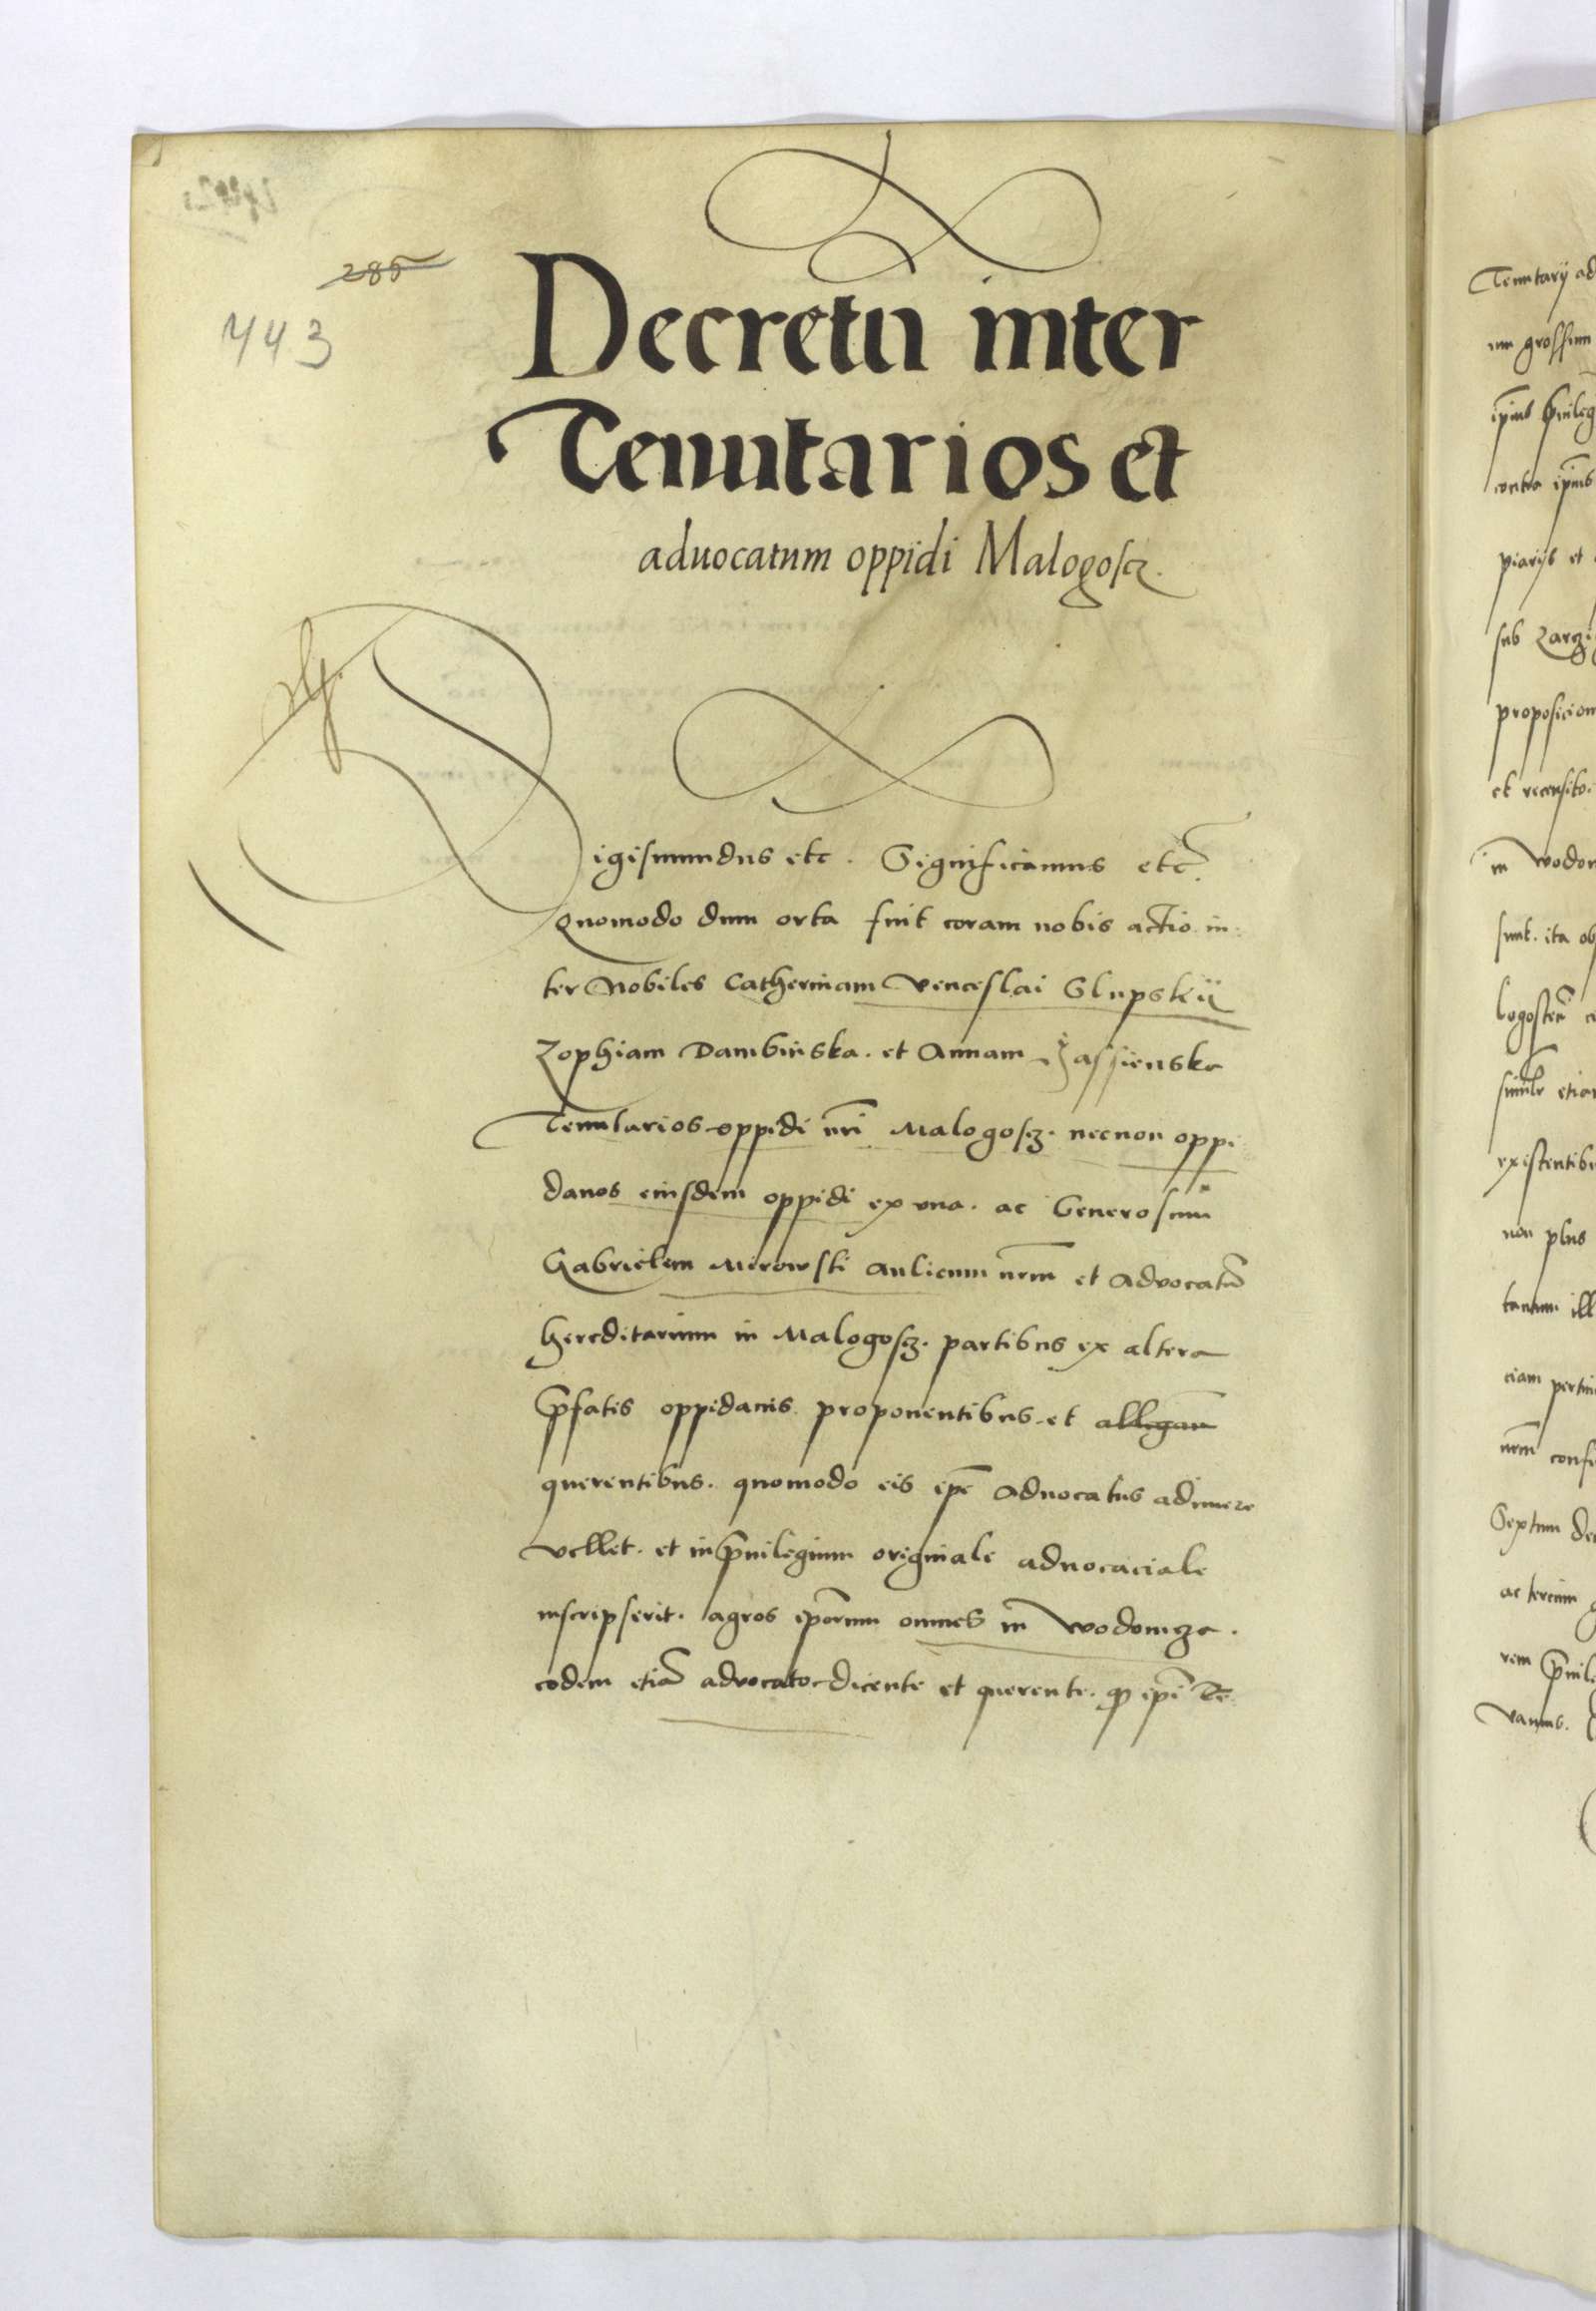 285
443
Decretũ inter
Tenutarios et
aduocatum oppidi Malogoſcz
Sigiſmundus etc. Significamus etc.
Quomodo dum orta fuit coram nobis actio in
ter Nobiles Catherinam Venceſlai Glupskij
Zophiam Dambinska. et Annam Jaſſienska
Tenutarios oppidi nr̃i Malogoſcz. necnon oppi
danos eiuſdem oppidi ex vna. ac Generoſum
Gabrielem Mirowſki aulicum nr̃m et advocatũ
hereditarium in Malogoſcz. partibus ex altera
p̃fatis oppidanis proponentibus et allegan
querentibus. quomodo eis ip̃e aduocatus adimere
vellet. et in p̃uilegium originale aduocaciale
inscripſerit. agros ip̃orum omnes in Wodonicze.
eodem etiã advocato dicente et querente. ip̃i Te
Tenutarij ad
um groſſum
ip̃ius p̃uileg
contra ip̃ius
piarijs et
ſub
propoſicion
et recenſito.
in Wodon
ſunt. ita ob
etia
exiſtentibu
non plus
tantum ill
ciam pertin
nr̃m conf
Septum de
ac tercium
rem p̃uile
vamus.